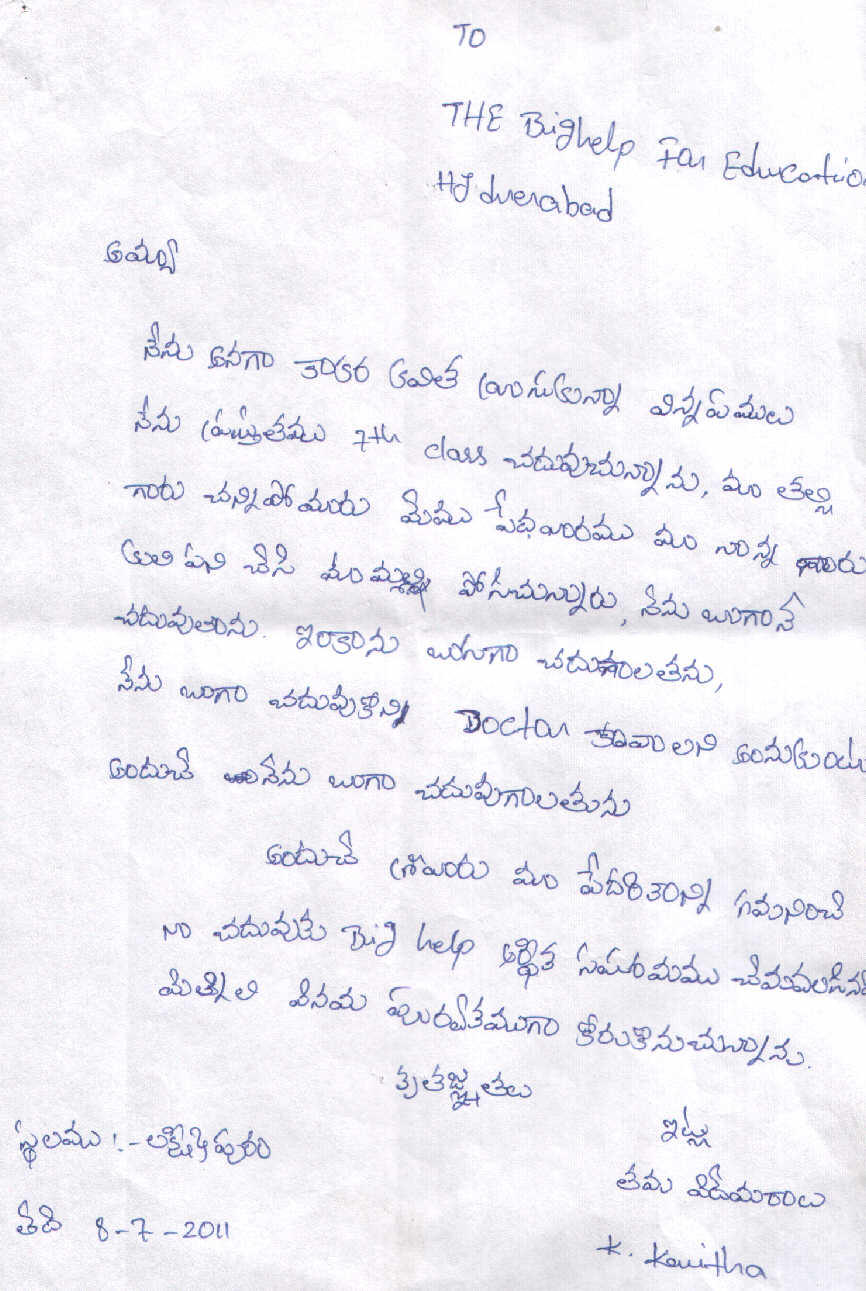 TO
THE Bighelp For Education
Hyderabad
అమ్మా
నేను అనగా కాకర కవిత వ్రాసుకున్నా విన్నపములు
నేను ప్రస్తుతము 7th class చదువుచున్నాను, మా తల్లి
గారు చనిపోయారు మేము పేదవారము మా నాన్న గారు
కులి పని చేసి మమ్మల్ని పోసిచున్నారు, నేను బాగానే
చదువుతాను. ఇంకాను బాగుగా చదువగాలతను,
నేను బాగా చదువుకోని Doctor కావాలని అనుకుంటు
అందుచే నేను బాగా చదువుగాలతును
అందుచే మా పేదరికాన్ని గమనించి
నా చదువుకు Big help ఆర్థిక సహాయము చేయవలసిన
మిమ్మల్ని వినయ పూర్వకముగా కోరుకొనుచున్నాను.
కృతజ్ఞతలు
ఇట్లు
స్థలము :- లక్ష్మిపురం
తమ విదేయరాలు
తేది 8-7-2011
K. Kavitha